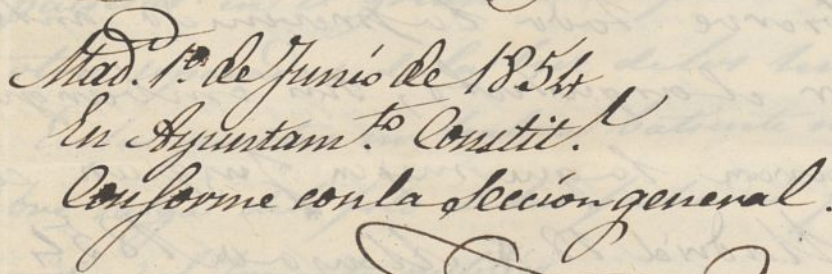 Mad. 1º de Junio de 1854
En Ayuntam.to Constit.l
Conforme con la Seccion general.